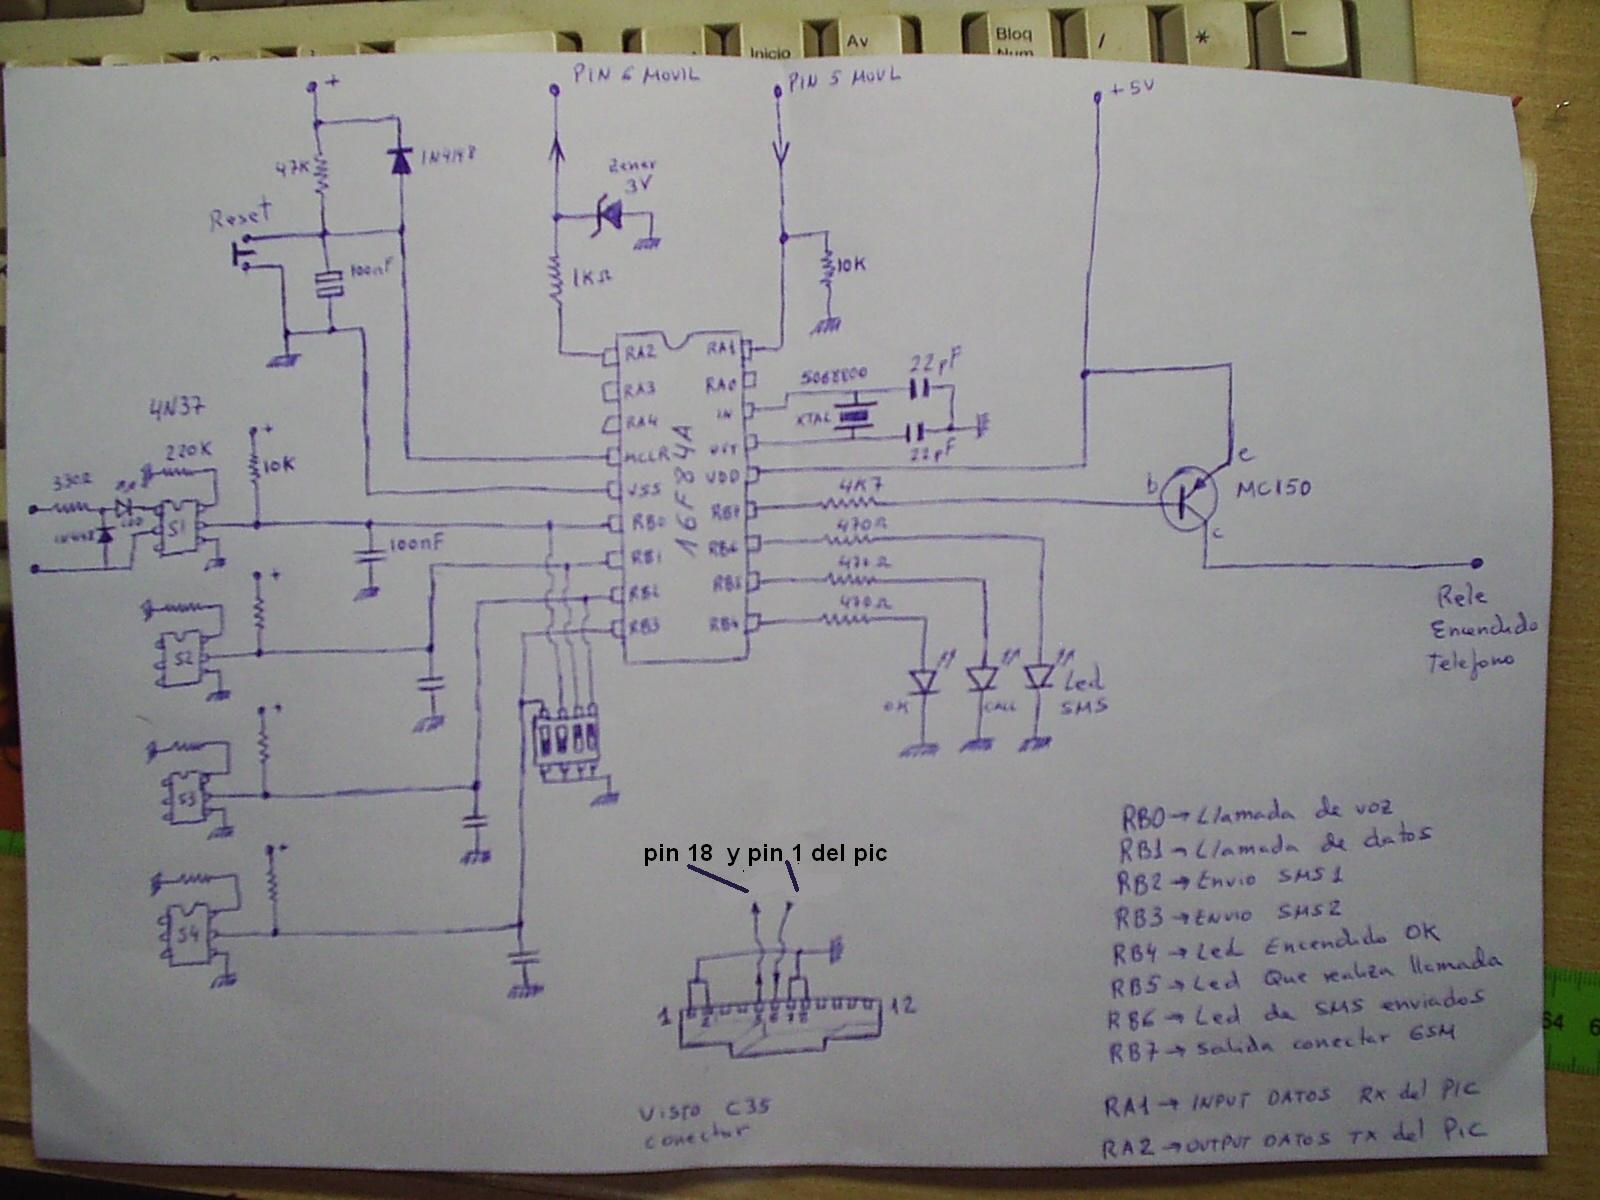 Inicio
Av
Bloq
Num
/
*
-
PIN 6 MOVIL
PIN 5 MOVL
+5V
+
47K
1N4148
Reset
100nF
Zener
3V
1KΩ
10K
RA2
RA3
RA4
MCLR
VSS
RB0
RB1
RB2
RB3
16F84A
RA1
RA0
IN
OUT
VDD
RB7
RB6
RB5
RB4
5068800
XTAL
22pF
22pF
4K7
470Ω
470Ω
470Ω
b
e
c
MC150
Rele
Encendido
Telefono
OK
CALL
Led
SMS
4N37
220K
330Ω
+
10K
S1
100nF
+
S2
+
S3
+
S4
pin 18 y pin 1 del pic
1
2
5
6
7
8
12
Visto C35
conector
RB0→Llamada de voz
RB1→Llamada de datos
RB2→Envio SMS1
RB3→Envio SMS2
RB4→Led Encendido OK
RB5→Led Que realiza llamada
RB6→Led de SMS enviados
RB7→Salida conectar GSM
RA1→INPUT DATOS RX del PIC
RA2→OUTPUT DATOS TX del PIC
64